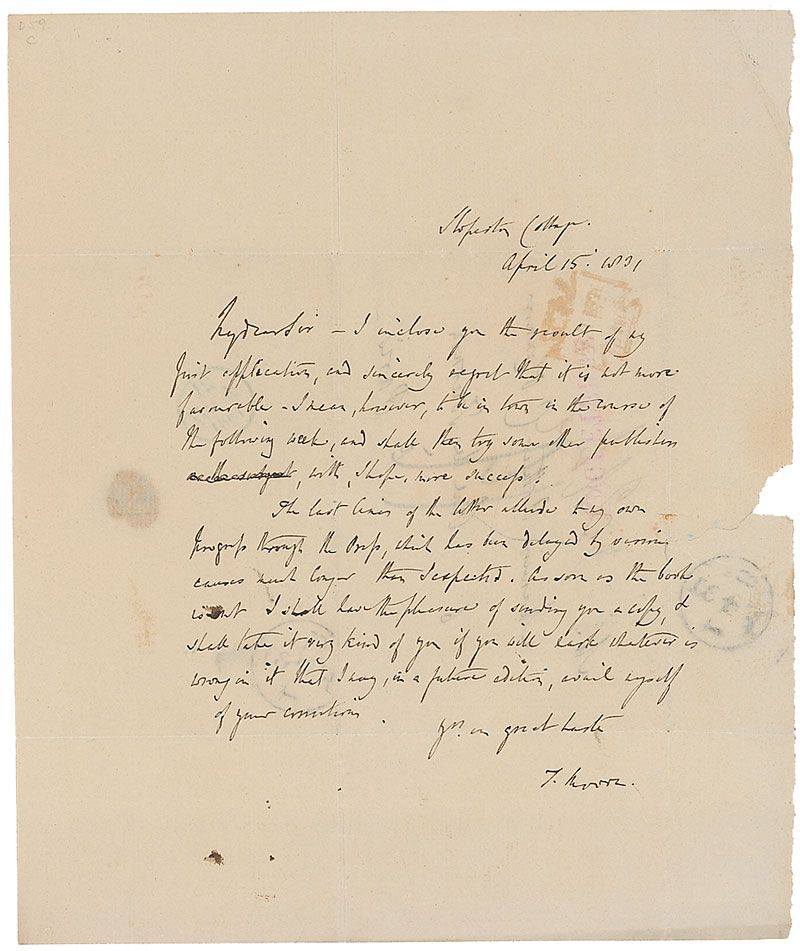 D59
C
Sloperton Cottage.
April 15th 1831
My dear Sir – I inclose you the result of my
first application, and sincerely regret that it is not more
favourable – I mean, however, to be in town in the course of
the following week, and shall then try some other publishers
with, I hope, more success.
The last lines of the letter allude to my own
progress through the Press, which has been delayed by various
causes much longer than I expected. As soon as the book
is out I shall have the pleasure of sending you a copy, &
shall take it very kind of you if you will mark whatever is
wrong in it that I may, in a future edition, avail myself
of your corrections.
Yrs. in great haste
T. Moore.